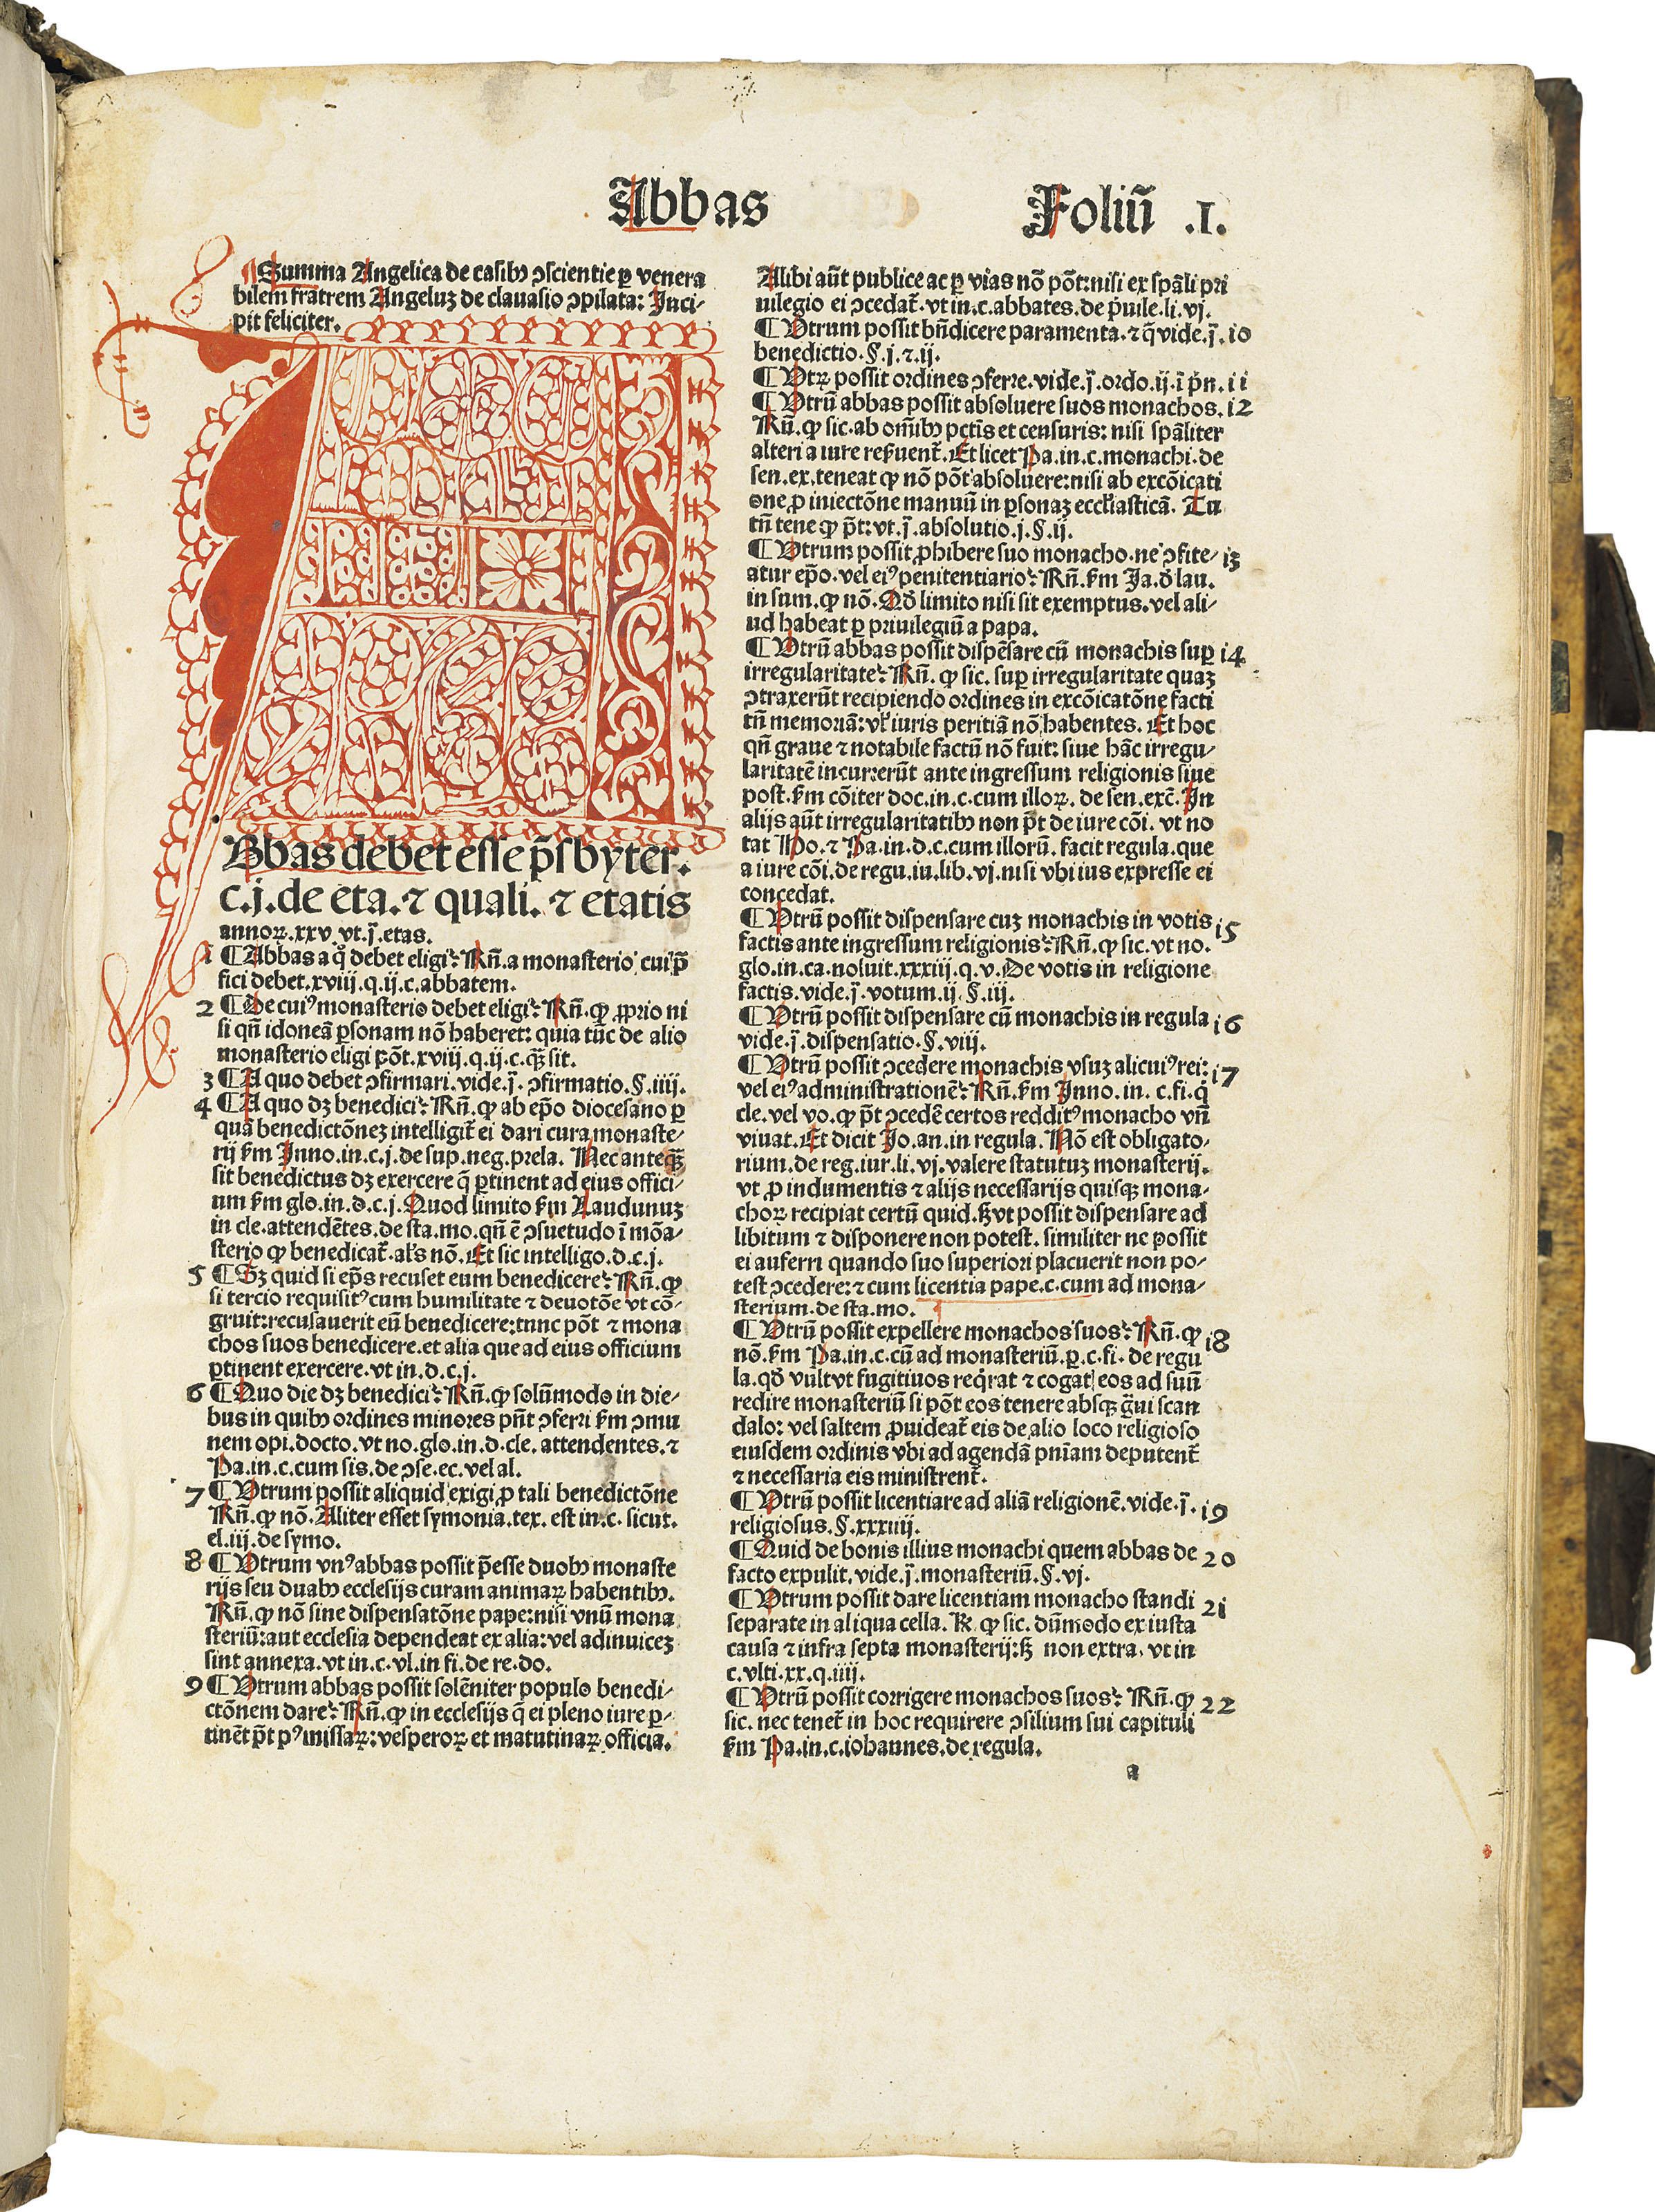 Abbas
Foliũ .I.
¶ Summa Angelica de casibꝰ ꝯscientie ꝑ venera
bilem fratrem Angeluꝫ de clauasio ꝯpilata: Inci-
pit feliciter.
ABbas debet esse p̃sbyter.
c.j.de eta.⁊ quali. ⁊ etatis
annoꝝ.xxv.vt.j̃.etas.
1 ¶ Abbas a q̊ debet eligi? Rñ.a monasterio cui p̃
fici debet.xviij.q.ij.c.abbatem.
2 ¶ De cuiꝰ monasterio debet eligi? Rñ.ꝙ ꝓprio ni
si qñ idoneã ꝑsonam nõ haberet: quia tũc de alio
monasterio eligi põt.xviij.q.ij.c.q̃ꝫ sit.
3 ¶ A quo debet ꝯfirmari.vide.j̃. ꝯfirmatio.§.iiij.
4 ¶ A quo dꝫ benedici? Rñ.ꝙ ab ep̃o diocesano ꝑ
quã benedictõneꝫ intelligit̃ ei dari cura monaste-
rij ẜm Inno.in.c.j.de sup.neg.prela. Nec anteq̃ꝫ
sit benedictus dꝫ exercere q̃ ꝑtinent ad eius offici-
um ẜm glo.in.d.c.j.Quod limito ẜm Laudunuꝫ
in cle.attendẽtes.de sta.mo.qñ ẽ ꝯsuetudo ĩ mõa-
sterio ꝙ benedicat̃.al's nõ.Et sic intelligo.d.c.j.
5 ¶ Sꝫ quid si ep̃s recuset eum benedicere? Rñ.ꝙ
si tercio requisitꝰ cum humilitate ⁊ deuotõe vt cõ-
gruit:recusauerit eũ benedicere:tunc põt ⁊ mona
chos suos benedicere.et alia que ad eius officium
ꝑtinent exercere.vt in.d.c.j.
6 ¶ Quo die dꝫ benedici? Rñ.ꝙ solũmodo in die-
bus in quibꝰ ordines minores pñt ꝯferri ẜm ꝯmu
nem opi.docto.vt no.glo.in.d.cle.attendentes.⁊
Pa.in.c.cum sis.de ꝯse.ec.vel al.
7 ¶ Vtrum possit aliquid exigi ꝓ tali benedictõne
Rñ.ꝙ nõ.Aliter esset symonia.tex. est in.c. sicut.
el.iij.de symo.
8 ¶ Vtrum vnꝰ abbas possit p̃esse duobꝰ monaste
rijs seu duabꝰ ecclesijs curam animaꝝ habentibꝰ.
Rñ.ꝙ nõ sine dispensatõne pape:nisi vnũ mona
steriũ:aut ecclesia dependeat ex alia:vel adinuiceꝫ
sint annexa.vt in.c.vl.in fi.de re.do.
9 ¶ Vtrum abbas possit solẽniter populo benedi-
ctõnem dare? Rñ.ꝙ in ecclesijs q̃ ei pleno iure ꝑ-
tinẽt p̃t pꝰ missaꝝ:vesperoꝝ et matutinaꝝ officia.
Alibi aũt publice ac ꝑ vias nõ põt:nisi ex spãli pri
uilegio ei ꝯcedat̃.vt in.c.abbates.de p̃uile.li.vj.
¶ Vtrum possit bñdicere paramenta.⁊ q̃ vide.j̃. 10
benedictio.§.j.⁊.ij.
¶ Vtꝝ possit ordines ꝯferre.vide.j̃.ordo.ij.ĩ p̃n. 11
¶ Vtrũ abbas possit absoluere suos monachos. 12
Rñ.ꝙ sic.ab om̃ibꝰ pctĩs et censuris: nisi spãliter
alteri a iure reẜuent̃.Et licet Pa.in.c.monachi.de
sen.ex.teneat ꝙ nõ põt absoluere:nisi ab excõicati
one ꝓ iniectõne manuũ in ꝑsonaꝫ eccl'iasticã. Tu
tñ tene ꝙ p̃t:vt.j̃.absolutio.j.§.ij.
¶ Vtrum possit ꝓhibere suo monacho.ne ꝯfite- 13
atur ep̃o.vel eiꝰ penitentiario? Rñ.ẜm Ja.d' lau.
in sum.ꝙ nõ.Qd' limito nisi sit exemptus.vel ali-
ud habeat ꝑ priuilegiũ a papa.
¶ Vtrũ abbas possit dispẽsare cũ monachis suꝑ 14
irregularitate? Rñ. ꝙ sic. suꝑ irregularitate quaꝫ
ꝯtraxerũt recipiendo ordines in excõicatõne facti
tñ memoriã: vl' iuris peritiã nõ habentes. Et hoc
qñ graue ⁊ notabile factũ nõ fuit: siue hãc irregu-
laritatẽ incurrerũt ante ingressum religionis siue
post.ẜm cõiter doc.in.c.cum illoꝝ. de sen.exc̃.In
alijs aũt irregularitatibꝰ non p̃t de iure cõi. vt no
tat Ho.⁊ Pa.in.d.c.cum illorũ.facit regula.que
a iure cõi.de regu.iu.lib.vj.nisi vbi ius expresse ei
concedat.
¶ Vtrũ possit dispensare cuꝫ monachis in votis 15
factis ante ingressum religionis? Rñ.ꝙ sic.vt no.
glo.in.ca.noluit.xxxiij.q.v.De votis in religione
factis.vide.j̃.votum.ij.§.iij.
¶ Vtrũ possit dispensare cũ monachis in regula 16
vide.j̃.dispensatio.§.viij.
¶ Vtrũ possit ꝯcedere monachis vsuꝫ alicuiꝰ rei: 17
vel eiꝰ administrationẽ? Rñ.ẜm Inno.in. c.fi.q̊
cle.vel vo.ꝙ p̃t ꝯcedẽ certos redditꝰ monacho vñ
viuat.Et dicit Jo.an.in regula. Nõ est obligato-
rium.de reg.iur.li.vj.valere statutuꝫ monasterij.
vt ꝓ indumentis ⁊ alijs necessarijs quisqꝫ mona-
choꝝ recipiat certũ quid.sꝫ vt possit dispensare ad
libitum ⁊ disponere non potest. similiter ne possit
ei auferri quando suo superiori placuerit non po-
test ꝯcedere:⁊ cum licentia pape.c.cum ad mona-
sterium.de sta.mo.
¶ Vtrũ possit expellere monachos suos? Rñ.ꝙ 18
nõ.ẜm Pa.in.c.cũ ad monasteriũ.ꝑ.c.fi. de regu
la.qd' vult vt fugitiuos req̊rat ⁊ cogat eos ad suũ
redire monasteriũ si põt eos tenere absqꝫ g̃ui scan
dalo: vel saltem ꝓuideat̃ eis de alio loco religioso
eiusdem ordinis vbi ad agendã pnĩam deputent̃
⁊ necessaria eis ministrent̃.
¶ Vtrũ possit licentiare ad aliã religionẽ.vide.j̃. 19
religiosus.§.xxxiiij.
¶ Quid de bonis illius monachi quem abbas de 20
facto expulit.vide.j̃.monasteriũ.§.vj.
¶ Vtrum possit dare licentiam monacho standi 21
separate in aliqua cella. R̃. ꝙ sic. dũmodo ex iusta
causa ⁊ infra septa monasterij:sꝫ non extra. vt in
c.vlti.xx.q.iiij.
¶ Vtrũ possit corrigere monachos suos? Rñ.ꝙ 22
sic. nec tenet̃ in hoc requirere ꝯsilium sui capituli
ẜm Pa.in.c.iohannes.de regula.
a